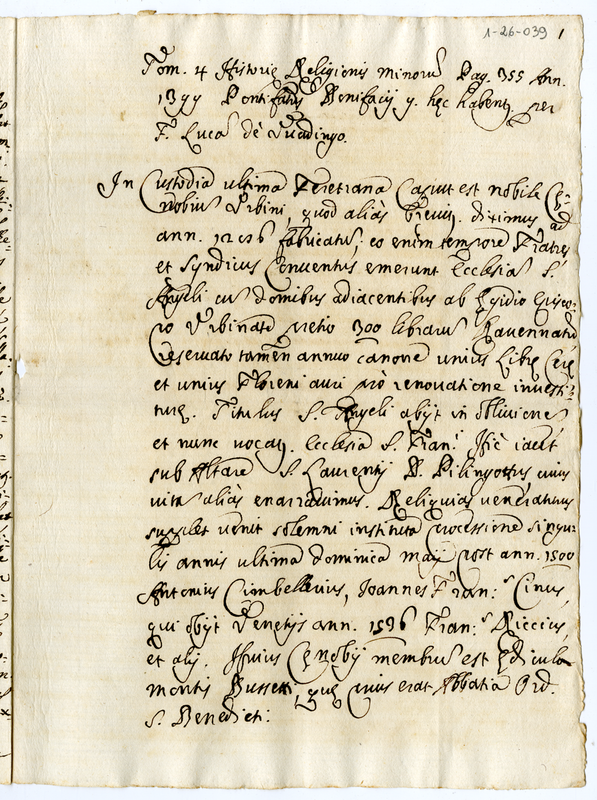 1-26-039 1
Tom. 4 Historię Religionis minorũ Pag. 355 Ann.
1399 Pontifatus Bonifacij 9. hęc habent, per
F. Lucã de Vuadingo.
In Custodia ultima Feretrana Caput est nobile Cę-
nobiũ Urbini, quod aliàs breuit. diximus ad
ann. 1286 fabricatũ; eo enim tempore Fratres
et Syndicus Conuentus emerunt Ecclesiã S.
Angeli cũ domibus adiacentibus ab Egidio Episco-
po Urbinate pretio 300 librarũ Rauennatũ
reseruato tamen annuo canone unius librę cerę
et unius Floreni auri prò renouatione inuesti-
turę. Titulus S. Angeli abijt in obliuionẽ
et nunc uocat. Ecclesia S. Fran.ⁱ Hic iacet
sub Altare S. Laurentij B. Pilingottus cuius
uitã aliàs enarrauimus. Reliquias ueneraturus
supplex uenit solemni instituta processione singu-
lis annis ultima dominica maij post ann. 1500
Antonius Cimbellus, Joannes Fran: ˢ Cinus,
qui obijt Venetijs ann. 1536 Fran: ˢ Riccius,
et alij. Huius Cęnobij membrũ est Ędicula
montis Busseti, quę prius erat Abbatia Ord.
S. Benedicti: